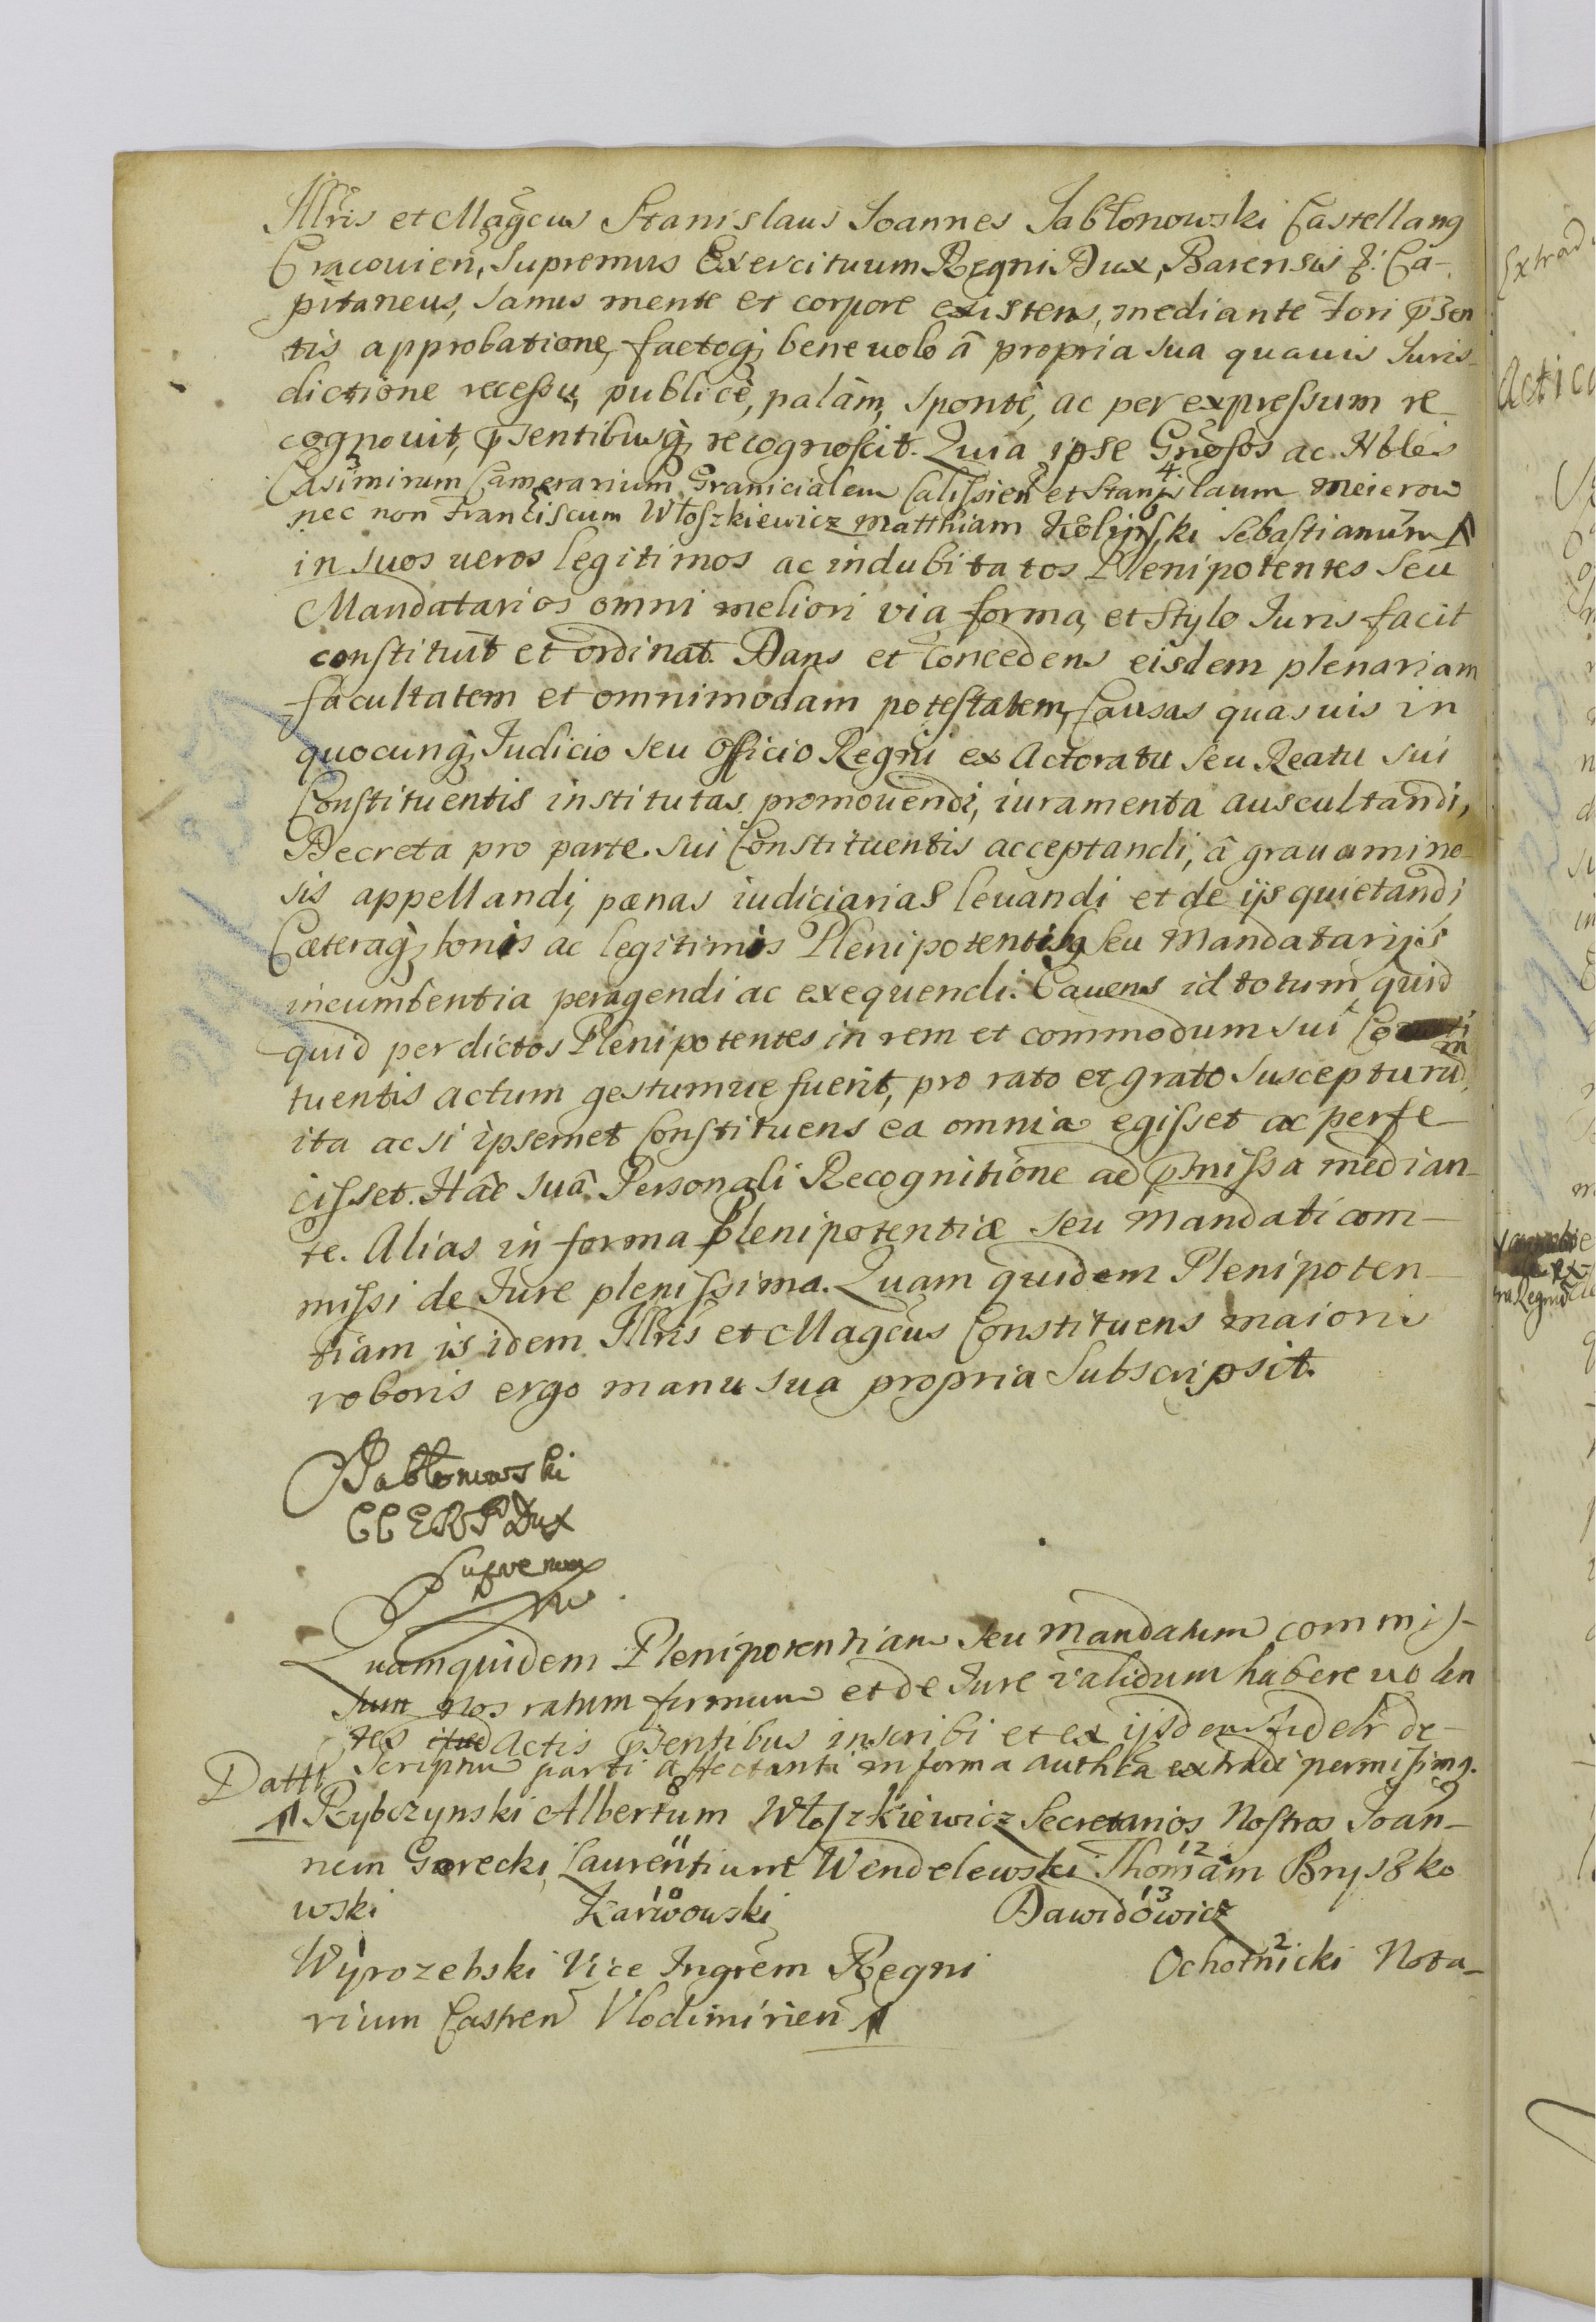 Illris et Magcus Stanislaus Joannes Jabłonowski Castellanꝯ
Cracouien, Supremus Exercituum Regni Dux, Barensis &: Ca-
pitaneus, sanus mente et corpore existens, mediante Fori p̄sen
tis approbatione, factoq; beneuolo â propria sua quauis Juris-
dictione recessu, publicè, palàm, spontè, ac per expressum re
cognouit, p̄sentibusq; recognoscit. Quia ipse Gnosos ac Nbles
Casimirum Camerarium Granicialem Calissien et Stanislaum Meierow
nec non Franciscum Włoszkiewicz Matthiam Sebastianum
in suos ueros legitimos ac indubitatos Plenipotentes Seu
Mandatarios omni meliori via, forma, et Stylo Juris facit
constituit et ordinat. Dans et Concedens eisdem plenariam
facultatem et omnimodam potestatem, Causas quasuis in
quocunq; Judicio seu Officio Regni ex Actoratu seu Reatu sui
Constituentis institutas promouendi, iuramenta auscultandi,
Decreta pro parte sui Constituentis acceptandi, â grauamino-
sis appellandi, pœnas iudiciarias leuandi et de ijs quietandi,
Cæteraq; bonis ac legitimis Plenipotentibꝯ seu Mandatarijs
incumbentia peragendi ac exequendi. Cauens id totum quid
quid per dictos Plenipotentes in rem et commodum sui Consti
tuentis actum gestumue fuerit, pro rato et grato suscepturum
ita ac si ipsemet Constituens ea omnia egisset ac perfe
cisset. Hâc suâ Personali Recognitione ad p̄missa median-
te. Alias in forma Plenipotentiæ seu Mandati com-
missi de Jure plenissima. Quam quidem Plenipoten-
tiam is idem Illris et Magcus Constituens maioris
roboris ergo manu sua propria Subscripsit.
Jabłonowski
CCERP Dux
Supremus
Quamquidem Plenipotentiam seu Mandatum commis-
sum nos ratum firmum et de Jure validum habere uolen
tes Actis p̄sentibus inscribi et ex ijsdem fidelr de-
scriptum parti affectanti in forma authca extradi permisimꝯ.
Datt
Rybczynski 8 Albertum Włoszkiewicz Secretarios Nostros 9 Joan-
nem Gorecki, 11 Laurentium Wendelewski 12 Thomam Bryszko
wski 10 Karwowski 13 Dawidowicz
1 Wyrozebski Vice Ingrem Regni 2 Ochotnicki Nota-
rium Castren Vlodimirien